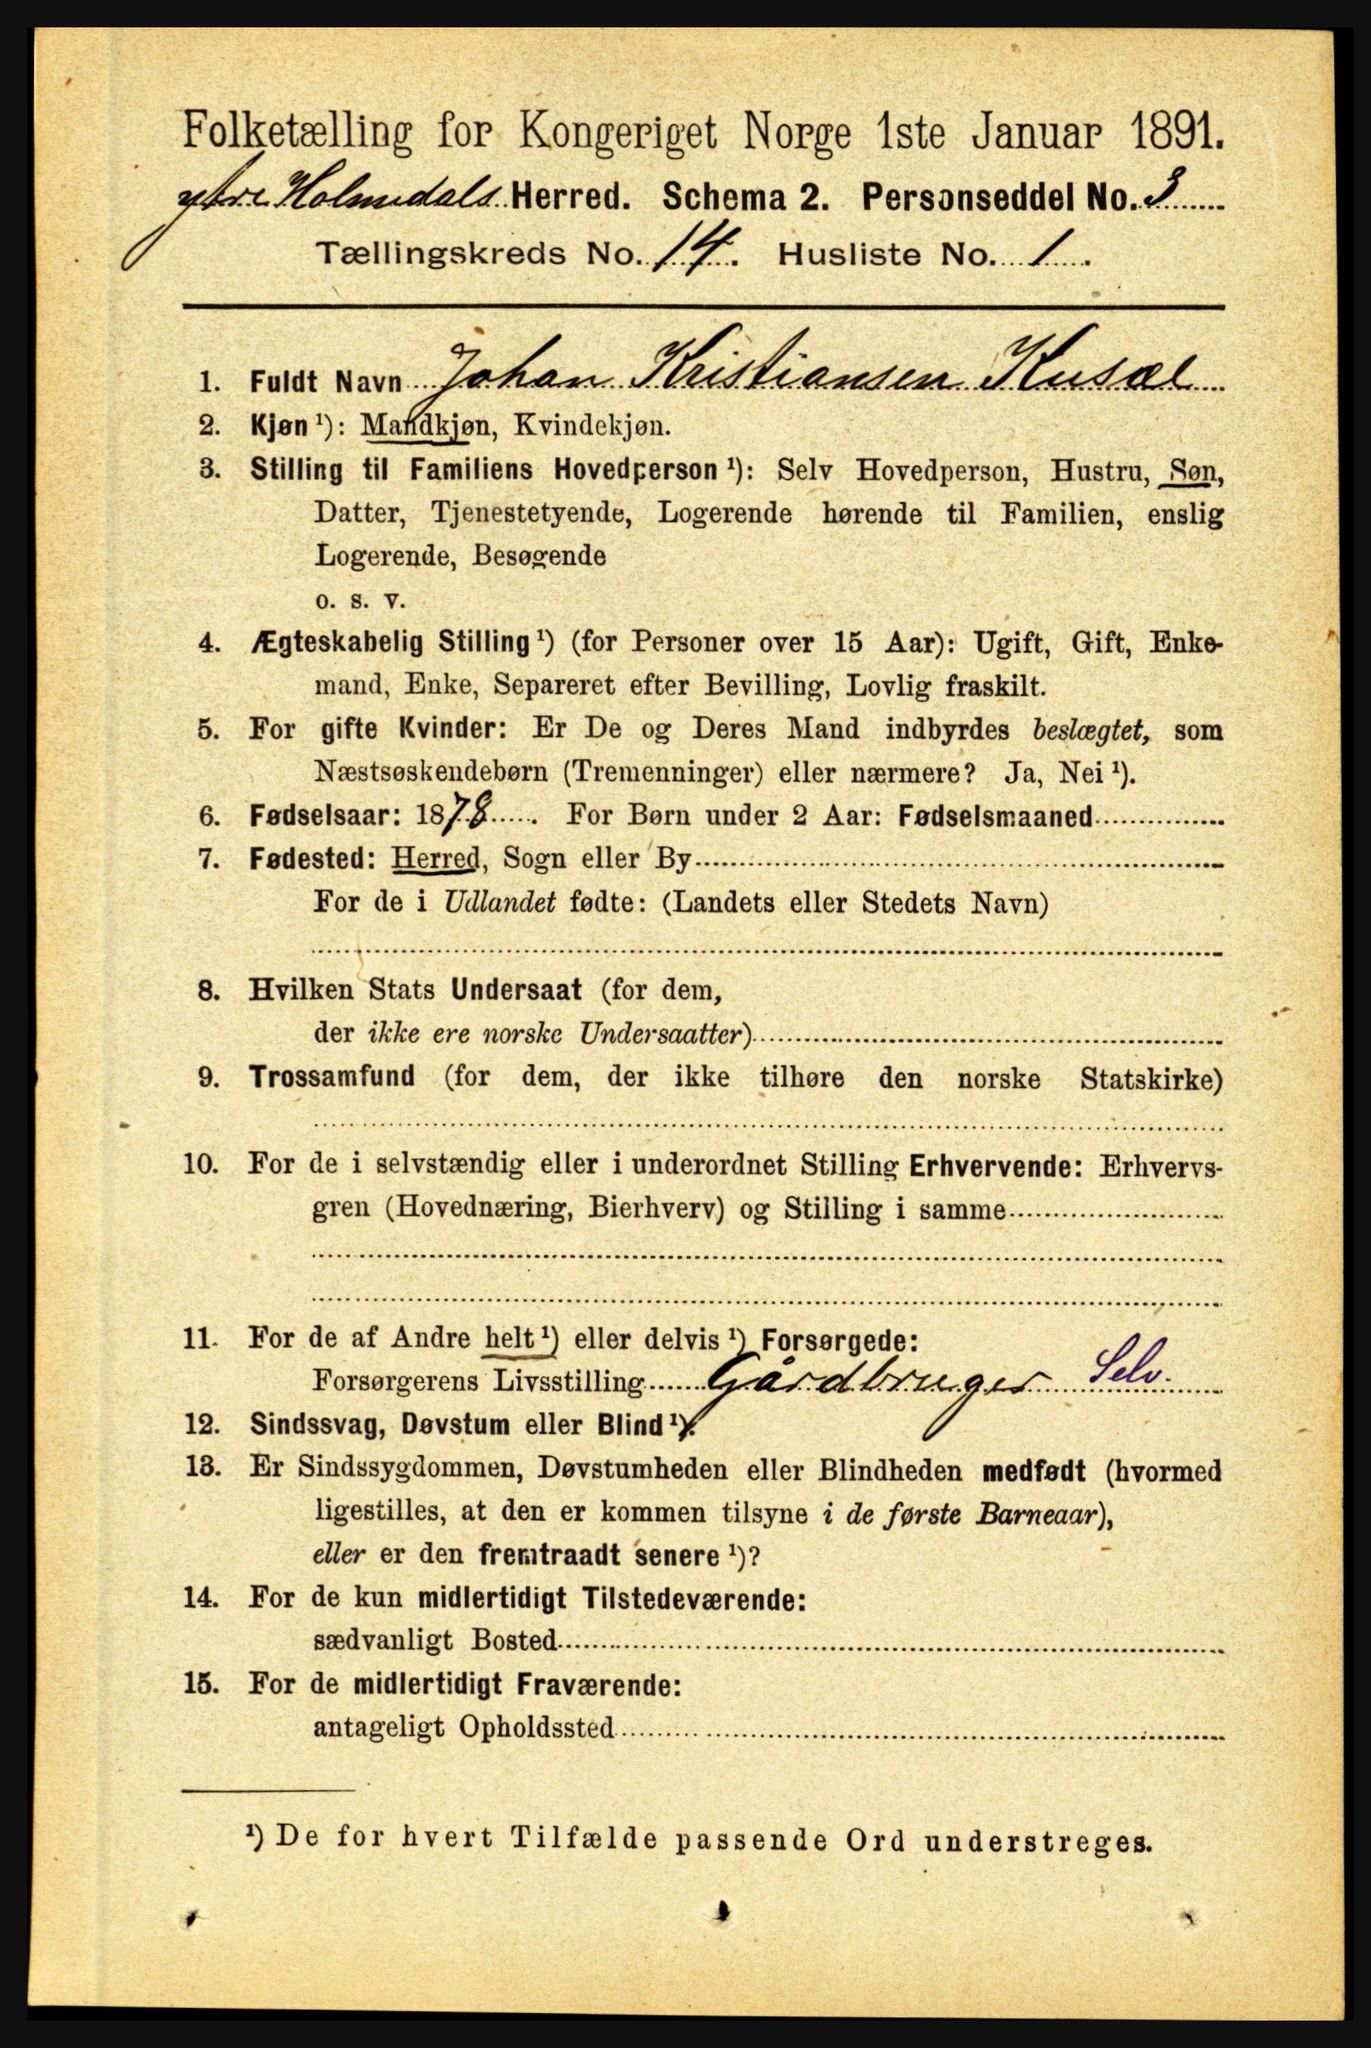 Folketælling for Kongeriget Norge 1ste Januar 1891.
ytre Holmedals Herred. Schema 2. Personseddel No. 3
Tællingskreds No. 14. Husliste No. 1.
1. Fuldt Navn Johan Kristiansen Kusæl
2. Kjøn ¹): Mandkjøn, Kvindekjøn.
3. Stilling til Familiens Hovedperson ¹): Selv Hovedperson, Hustru, Søn,
Datter, Tjenestetyende, Logerende hørende til Familien, enslig
Logerende, Besøgende
o. s. v.
4. Ægteskabelig Stilling ¹) (for Personer over 15 Aar): Ugift, Gift, Enke-
mand, Enke, Separeret efter Bevilling, Lovlig fraskilt.
5. For gifte Kvinder: Er De og Deres Mand indbyrdes beslægtet, som
Næstsøskendebørn (Tremenninger) eller nærmere? Ja, Nei ¹).
6. Fødselsaar: 1878. For Børn under 2 Aar: Fødselsmaaned
7. Fødested: Herred, Sogn eller By
For de i Udlandet fødte: (Landets eller Stedets Navn)
8. Hvilken Stats Undersaat (for dem,
der ikke ere norske Undersaatter)
9. Trossamfund (for dem, der ikke tilhøre den norske Statskirke)
10. For de i selvstændig eller i underordnet Stilling Erhvervende: Erhvervs-
gren (Hovednæring, Bierhverv) og Stilling i samme
11. For de af Andre helt ¹) eller delvis ¹) Forsørgede:
Forsørgerens Livsstilling Gårdbruger Selv.
12. Sindssvag, Døvstum eller Blind ¹).
13. Er Sindssygdommen, Døvstumheden eller Blindheden medfødt (hvormed
ligestilles, at den er kommen tilsyne i de første Barneaar),
eller er den fremtraadt senere ¹)?
14. For de kun midlertidigt Tilstedeværende:
sædvanligt Bosted
15. For de midlertidigt Fraværende:
antageligt Opholdssted
¹) De for hvert Tilfælde passende Ord understreges.